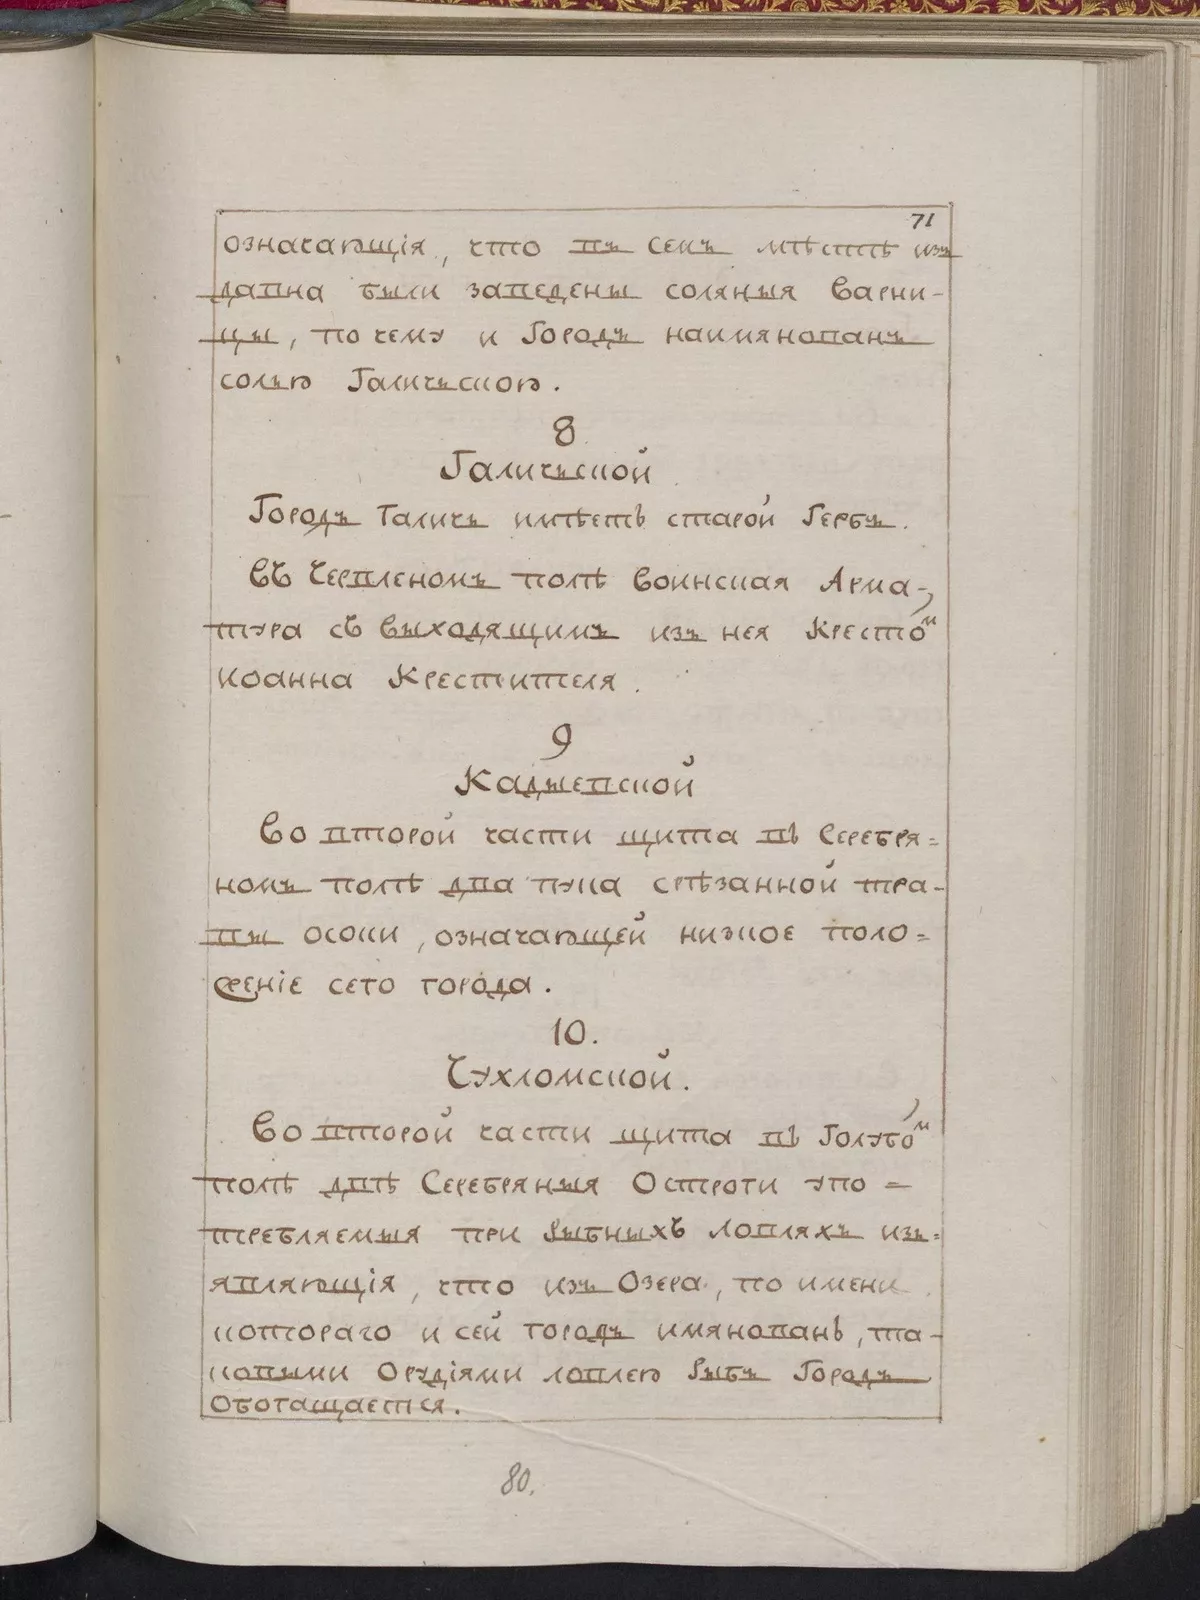 71
означающія, что въ семъ мѣстѣ изъ
давна были заведены соляныя варни-
цы, по чему и Городъ наимянованъ
солью Галичьскою.
8
Галичьской
Городъ Галичь имѣетъ старой Гербъ.
Въ Червленомъ полѣ Воинская Арма-
тура съ выходящимъ изъ нея Крестомъ
иоанна Крестителя.
9
Кадыевской
Во второй части щита въ Серебря=
номъ полѣ два пука срѣзанной тра-
вы осоки, означающей низкое поло=
женіе сего города.
10.
Чухломской.
Во второй части щита въ Голубом
полѣ двѣ Серебряныя Остроги упо=
требляемыя при Рыбныхъ ловляхъ изъ=
являющія, что изъ Озера, по имени
котораго и сей городъ имянованъ, та-
ковыми Орудіями ловлею Рыбъ Городъ
Обогащается.
80.